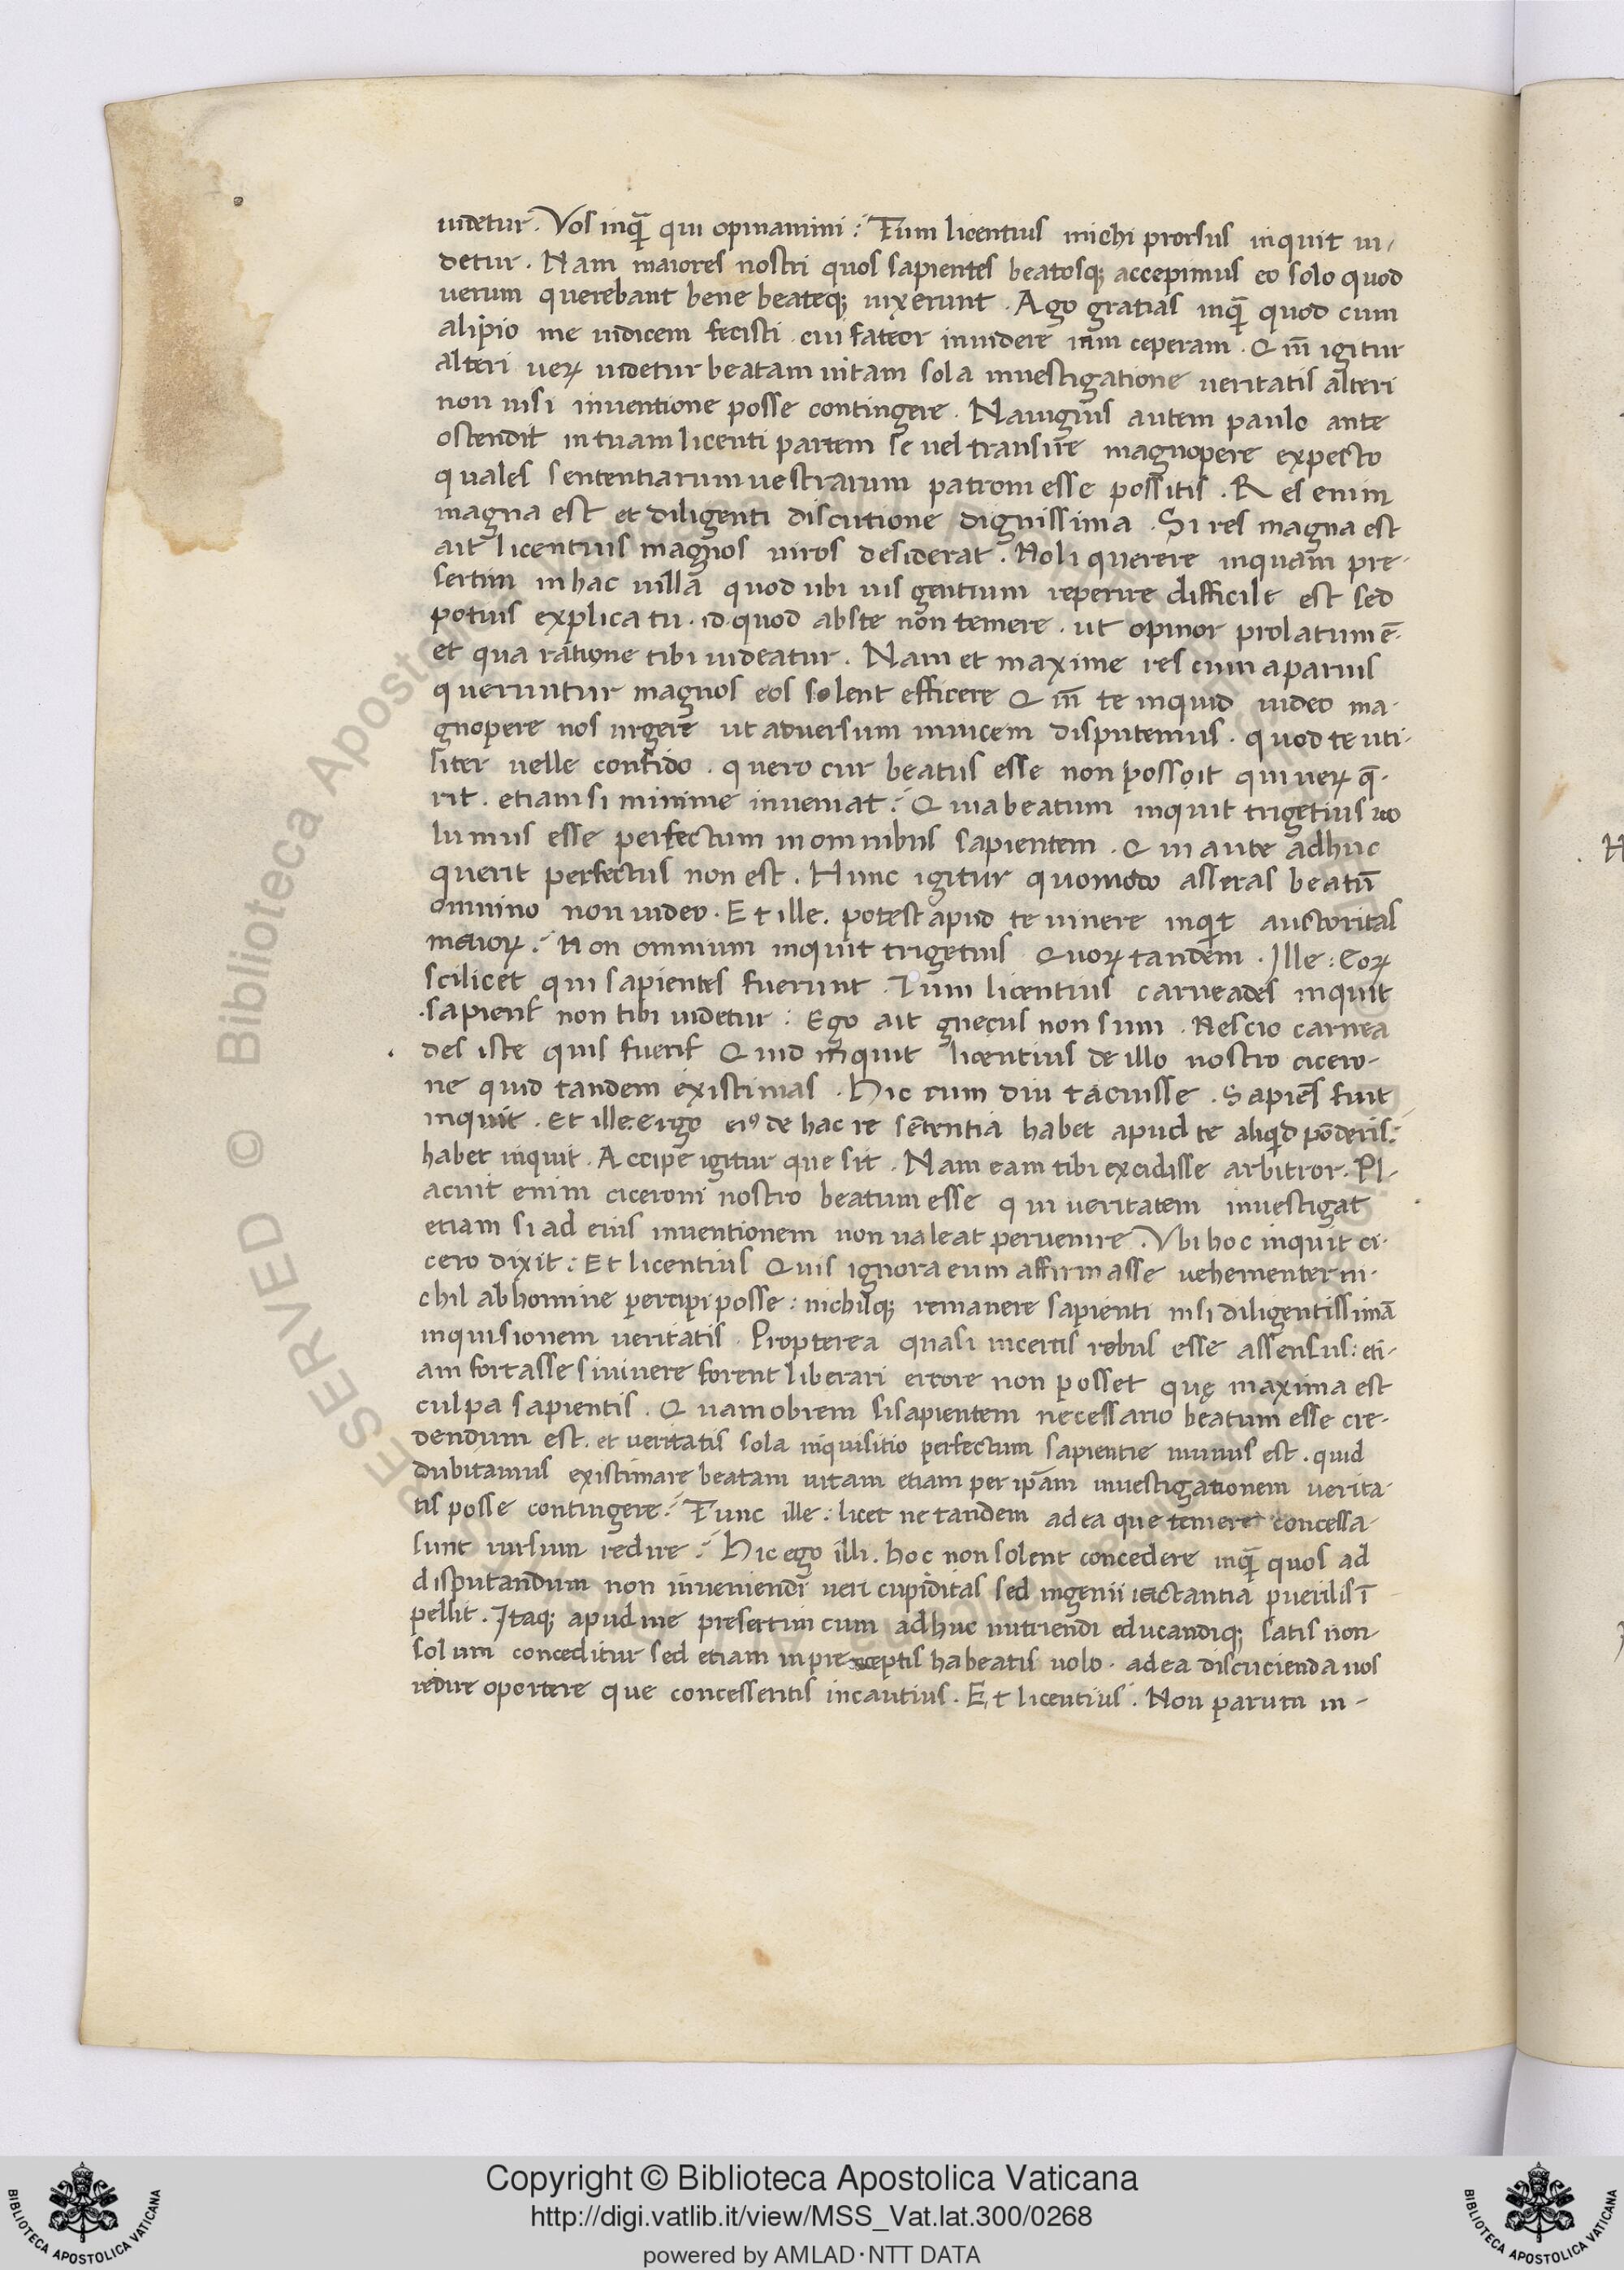 uidetur. Vos inq̃ qui opinamini: Tum licentius michi prorsus inquit ui/
detur. Nam maiores nostri quos sapientes beatosq; accepimus eo solo quod
uerum querebant bene beateq; uixerunt. Ago gratias inq̃ quod cum
alipio me iudicem fecisti. cui fateor inuidere iam ceperam. Qm̃ igitur
alteri ueꝝ uidetur beatam uitam sola inuestigatione ueritatis alteri
non nisi inuentione posse contingere. Nauigius autem paulo ante
ostendit in tuam licenti partem se uel transire magnopere expecto
quales sententiarum uestrarum patroni esse possitis. Res enim
magna est et diligenti discutione dignissima. Si res magna est
ait licentius magnos uiros desiderat. Noli querere inquam pre-
sertim in hac uilla quod ubi uis gentium reperire difficile est sed
potius explica tu. id quod abste non temere. ut opinor prolatum ē.
et qua ratione tibi uideatur. Nam et maxime res cum aparuis
queruntur magnos eos solent efficere Qm̃ te inquid uideo ma-
gnopere nos urgere ut aduersum inuicem disputemus. quod te uti-
liter uelle confido. quero cur beatus esse non possit qui ueꝝ q̄-
rit. etiam si minime inueniat: Quia beatum inquit trigetius uo
lumus esse perfectum in omnibus sapientem. Qui aute adhuc
querit perfectus non est. Hunc igitur quomodo asseras beatū
omnino non uideo. Et ille. potest apud te uiuere inqit auctoritas
maioꝝ: Non omnium inquit trigetius Quoꝝ tandem. Ille: Eoꝝ
scilicet qui sapientes fuerunt. Tum licentius carneades inquit
.sapiens non tibi uidetur: Ego ait grecus non sum. Nescio carnea
des iste quis fuerit Quid inquit licentius de illo nostro cicero-
ne quid tandem existimas. Hic cum diu tacuisse. Sapiens fuit
inquit. Et ille. Ergo ei9 de hac re sententia habet apud te aliqid pōderis:
habet inquit. Accipe igitur que sit. Nam eam tibi excidisse arbitror. Pl-
acuit enim ciceroni nostro beatum esse qui ueritatem inuestigat
etiam si ad eius inuentionem non ualeat peruenire. Vbi hoc inquit ci-
cero dixit: Et licentius Quis ignora eum affirmasse uehementer ni-
chil ab homine percipi posse: nichilq; remanere sapienti nisi diligentissimā
inquisionem ueritatis. Propterea quasi incertis rebus esse assensus: eti-
am fortasse si uiuere forent liberari errore non posset quę maxima est
culpa sapientis. Quamobrem si sapientem necessario beatum esse cre-
dendum est. et ueritatis sola inquisitio perfectum sapientie munus est. quid
dubitamus existimare beatam uitam etiam per ip̄am inuestigationem uerita-
tis posse contingere: Tunc ille: licet ne tandem ad ea que temere concessa-
sunt rursum redire: Hic ego illi. hoc non solent concedere inq̃ quos ad
disputandum non inueniendi ueri cupiditas sed ingenii iactantia puerilis ī
pellit. Itaq; apud me presertim cum adhuc nutriendi educandiq; satis non
solum conceditur sed etiam in preceptis habeatis uolo. ad ea discucienda uos
redire oportere que concesseritis incautius. Et licentius. Non parum in-
Copyright © Biblioteca Apostolica Vaticana
http://digi.vatlib.it/view/MSS_Vat.lat.300/0268
powered by AMLAD·NTT DATA
BIBLIOTECA APOSTOLICA VATICANA
BIBLIOTECA APOSTOLICA VATICANA